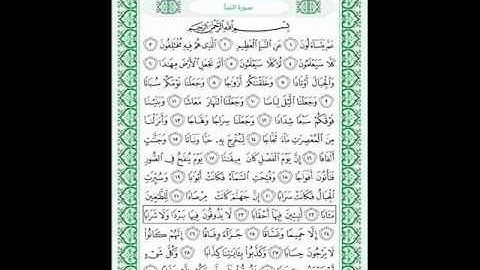 سورة النبأ
بِسْمِ اللَّهِ الرَّحْمَٰنِ الرَّحِيمِ
عَمَّ يَتَسَاءَلُونَ ١ عَنِ النَّبَإِ الْعَظِيمِ ٢ الَّذِي هُمْ فِيهِ مُخْتَلِفُونَ ٣
كَلَّا سَيَعْلَمُونَ ٤ ثُمَّ كَلَّا سَيَعْلَمُونَ ٥ أَلَمْ نَجْعَلِ الْأَرْضَ مِهَٰدًا ٦
وَالْجِبَالَ أَوْتَادًا ٧ وَخَلَقْنَٰكُمْ أَزْوَٰجًا ٨ وَجَعَلْنَا نَوْمَكُمْ سُبَاتًا
٩ وَجَعَلْنَا الَّيْلَ لِبَاسًا ١٠ وَجَعَلْنَا النَّهَارَ مَعَاشًا ١١ وَبَنَيْنَا
فَوْقَكُمْ سَبْعًا شِدَادًا ١٢ وَجَعَلْنَا سِرَاجًا وَهَّاجًا ١٣ وَأَنزَلْنَا
مِنَ الْمُعْصِرَٰتِ مَاءً ثَجَّاجًا ١٤ لِّنُخْرِجَ بِهِ حَبًّا وَنَبَاتًا ١٥ وَجَنَّٰتٍ
أَلْفَافًا ١٦ إِنَّ يَوْمَ الْفَصْلِ كَانَ مِيقَٰتًا ١٧ يَوْمَ يُنفَخُ فِي الصُّورِ
فَتَأْتُونَ أَفْوَاجًا ١٨ وَفُتِحَتِ السَّمَاءُ فَكَانَتْ أَبْوَٰبًا ١٩ وَسُيِّرَتِ
الْجِبَالُ فَكَانَتْ سَرَابًا ٢٠ إِنَّ جَهَنَّمَ كَانَتْ مِرْصَادًا ٢١ لِّلطَّٰغِينَ
مَـَٔابًا ٢٢ لَّٰبِثِينَ فِيهَا أَحْقَابًا ٢٣ لَّا يَذُوقُونَ فِيهَا بَرْدًا وَلَا شَرَابًا
٢٤ إِلَّا حَمِيمًا وَغَسَّاقًا ٢٥ جَزَاءً وِفَاقًا ٢٦ إِنَّهُمْ كَانُوا
لَا يَرْجُونَ حِسَابًا ٢٧ وَكَذَّبُوا بِـَٔايَٰتِنَا كِذَّابًا ٢٨ وَكُلَّ شَيْءٍ